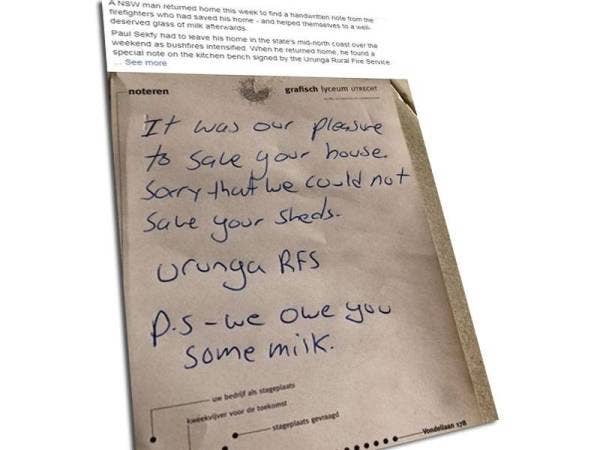 A NSW man returned home this week to find a handwritten note from the
firefighters who had saved his home - and helped themselves to a well-
deserved glass of milk afterwards.
Paul Sekfy had to leave his home in the state's mid-north coast over the
weekend as bushfires intensified. When he returned home, he found a
special note on the kitchen bench signed by the Urunga Rural Fire Service.
... See more
noteren
grafisch lyceum UTRECHT
It was our pleasure
to save your house.
Sorry that we could not
save your sheds.
Urunga RFS
P.S - we owe you
some milk.
uw bedrijf als stageplaats
kweekvijver voor de toekomst
stageplaats gevraagd
Vondellaan 178